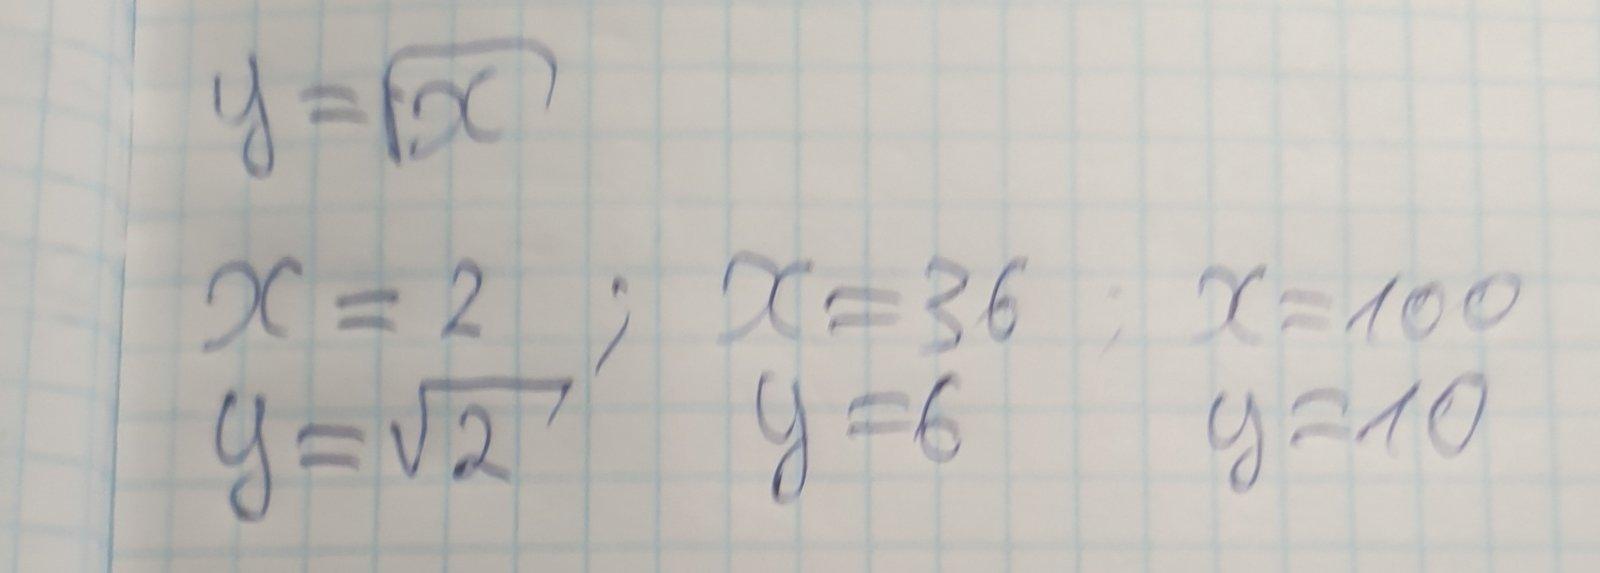 y = √x
x = 2 ; x = 36 ; x = 100
y = √2 y = 6 y = 10